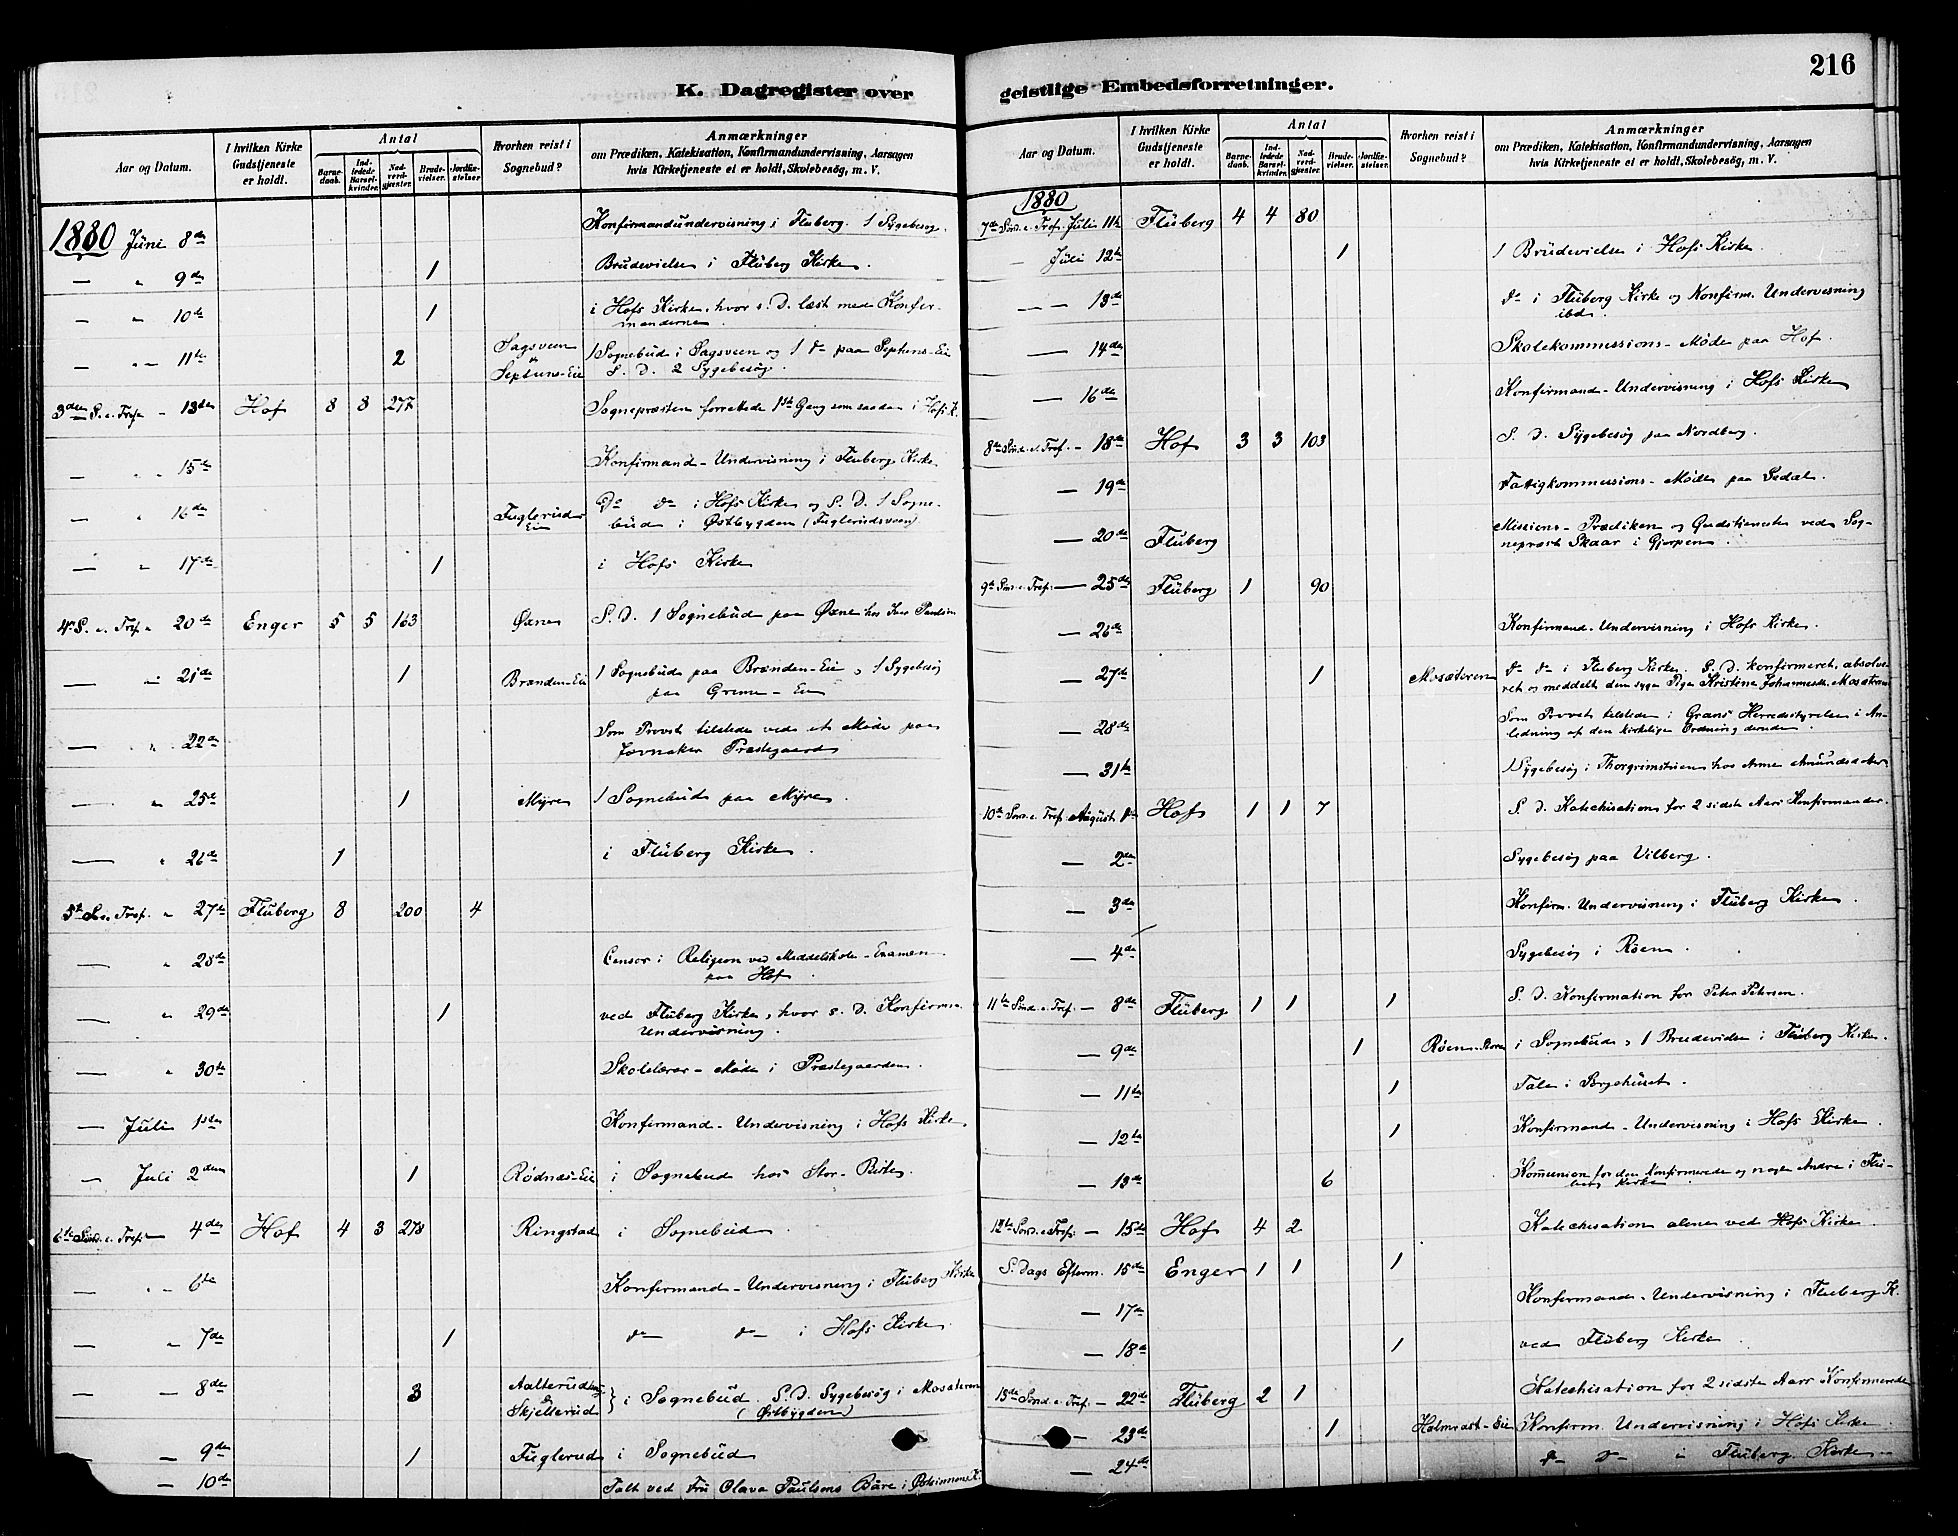 216
K. Dagregister over
geistlige Embedsforretninger.
Aar og Datum.
I hvilken Kirke
Gudstjeneste
er holdt.
Antal
Barne-
daab.
Ind-
ledede
Barsel-
kvinder.
Nad-
verd-
gjæster.
Brude-
vielser.
Jordfæ-
stelser
Hvorhen reist i
Sognebud?
Anmærkninger
om Prædiken, Katekisation, Konfirmandundervisning, Aarsagen
hvis Kirketjeneste ei er holdt, Skolebesøg, m. V.
1880 Juni 8de Konfirmandundervisning i Fluberg. 1 Sygebesøg.
— " 9de 1 Brudevielse i Fluberg Kirke.
— " 10de 1 i Hofs Kirke, hvor s. D. læst med Konfir-
manderne
— " 11te 2 Sagsveen
Septuns-Eie
1 Sognebud i Sagsveen og 1 do paa Septuns-Eie
S. D. 2 Sygebesøg.
3den S. e. Tref. — 13den Hof 8 8 277 Sognepræsten forrettede 1ste Gang som saadan i Hofs K.
" " 15de Konfirmand-Undervisning i Fluberg Kirke
— " 16de Fuglerud
Eie
Do do i Hofs Kirke og S. D. 1 Sogne-
bud i Østbygden (Fuglerudsveen)
— " 17de 1 i Hofs Kirke
4de S. e. Tref. " 20de Enger 5 5 163 Øxne S. D. 1 Sognebud paa Øxne hos
— " 21de 1 Brænden-Eie 1 Sognebud paa Brænden-Eie, 1 Sygebesøg
paa Grime-Eie
— " 22de Som Provst tilstede ved et Møde paa
Jevnaker Præstegaard
— " 25de 1 Myre 1 Sognebud paa Myre.
— " 26de 1 i Fluberg Kirke.
5te S. e. Tref. " 27de Fluberg 8 200 4
— " 28de Censor i Religion ved Middelskole-Examen
paa Hof.
— " 29de 1 ved Fluberg Kirke, hvor s. D. Konfirm.
Undervisning.
— " 30te Skolelærer-Møde i Præstegaarden.
— Juli 1ste Konfirmand-Undervisning i Hofs Kirke
— Juli 2den 1 Rødnæs-Eie i Sognebud hos
6te Sønd. e. Tref. — 4de Hof 4 3 278 Ringstad i Sognebud.
— " 6te Konfirmand-Undervisning i Fluberg Kirke
— " 7de 1 do do i Hofs Kirke
— — 8de 3 Aalterud
& Skjelterud
i Sognebud. S. D. Sygebesøg i Mosateren
(Østbygden)
— 9de 1 Fuglerud i Sognebud
— 10de Talt ved Fru Olava Paulsens Baare i Østsinnens K.
Aar og Datum.
I hvilken Kirke
Gudstjeneste
er holdt.
Antal
Barne-
daab.
Ind-
ledede
Barsel-
kvinder.
Nad-
verd-
gjæster.
Brude-
vielser.
Jordfæ-
stelser.
Hvorhen reist i
Sognebud?
Anmærkninger
om Prædiken, Katekisation, Konfirmandundervisning, Aarsagen
hvis Kirketjeneste ei er holdt, Skolebesøg, m. V.
1880
7de Sønd. e. Tref. Juli 11te Fluberg 4 4 80
— Juli 12te 1 1 Brudevielse i Hofs Kirke.
— 13de do i Fluberg Kirke og Konfirm. Undervisning
ibd.
— 14de Skolekommissions-Møde paa Hof.
— 16de Konfirmand-Undervisning i Hofs Kirke
8de Sønd. e. Tref. — 18de Hof 3 3 103 S. D. Sygebesøg paa Nordberg.
— 19de Fattigkommissions-Møde paa Sedal.
— 20de Fluberg Missions-Prædiken og Gudstjeneste ved Sog-
nepræst Skaar i Gjerpen.
9de Søn. e. Tref. — 25de Fluberg 1 90
— 26de Konfirmand. Undervisning i Hofs Kirke.
— 27de 1 Mosateren do do i Fluberg Kirke. S. D. konfirmeret, absolve-
ret og meddelt den syge Pige Kristine Johannesd. Mosateren
— 28de Som Provst tilstede i Grans Herredsstyrelse i An-
ledning af den kirkelige Ordning derude.
— 31te 1 Sygebesøg i Thorgrimstuen hos Anne Amundsdatter
10de Sønd. e. Tref. August 1ste Hof 1 1 7 S. D. Katechisation for 2 sidste Aars Konfirmander.
— 2den Sygebesøg paa Vilberg.
— 3de Konfirm. Undervisning i Fluberg Kirke.
— 4de Sygebesøg i Røen.
11te Sønd. e. Tref. — 8de Fluberg 1 1 1 S. D. Konfirmation for Peter Petersen.
— 9de 1 Røen i Sognebud, 1 Brudevielse i Fluberg Kirke.
— 11te 1 Tale i Sørgehuset.
— 12te 1 Konfirmand-Undervisning i Hofs Kirke.
— 13de 6 Kommunion for den Konfirmerede og nogle Andre i Flu-
berg Kirke
12te Sønd. e. Tref. — 15de Hof 4 2 Katechisation alene ved Hofs Kirke
S. Dags Efterm. 15de Enger 1 1 1
— 17de Konfirmand-Undervisning i Fluberg K.
— 18de 1 ved Fluberg Kirke.
13de Sønd. e. Tref. — 22de Fluberg 2 1 Katechisation for 2 sidste Aars Konfirmerede
— 23de 1 Halmrast-Eie Konfirm. Undervisning i Hofs Kirke.
— 24de do do i Fluberg Kirke